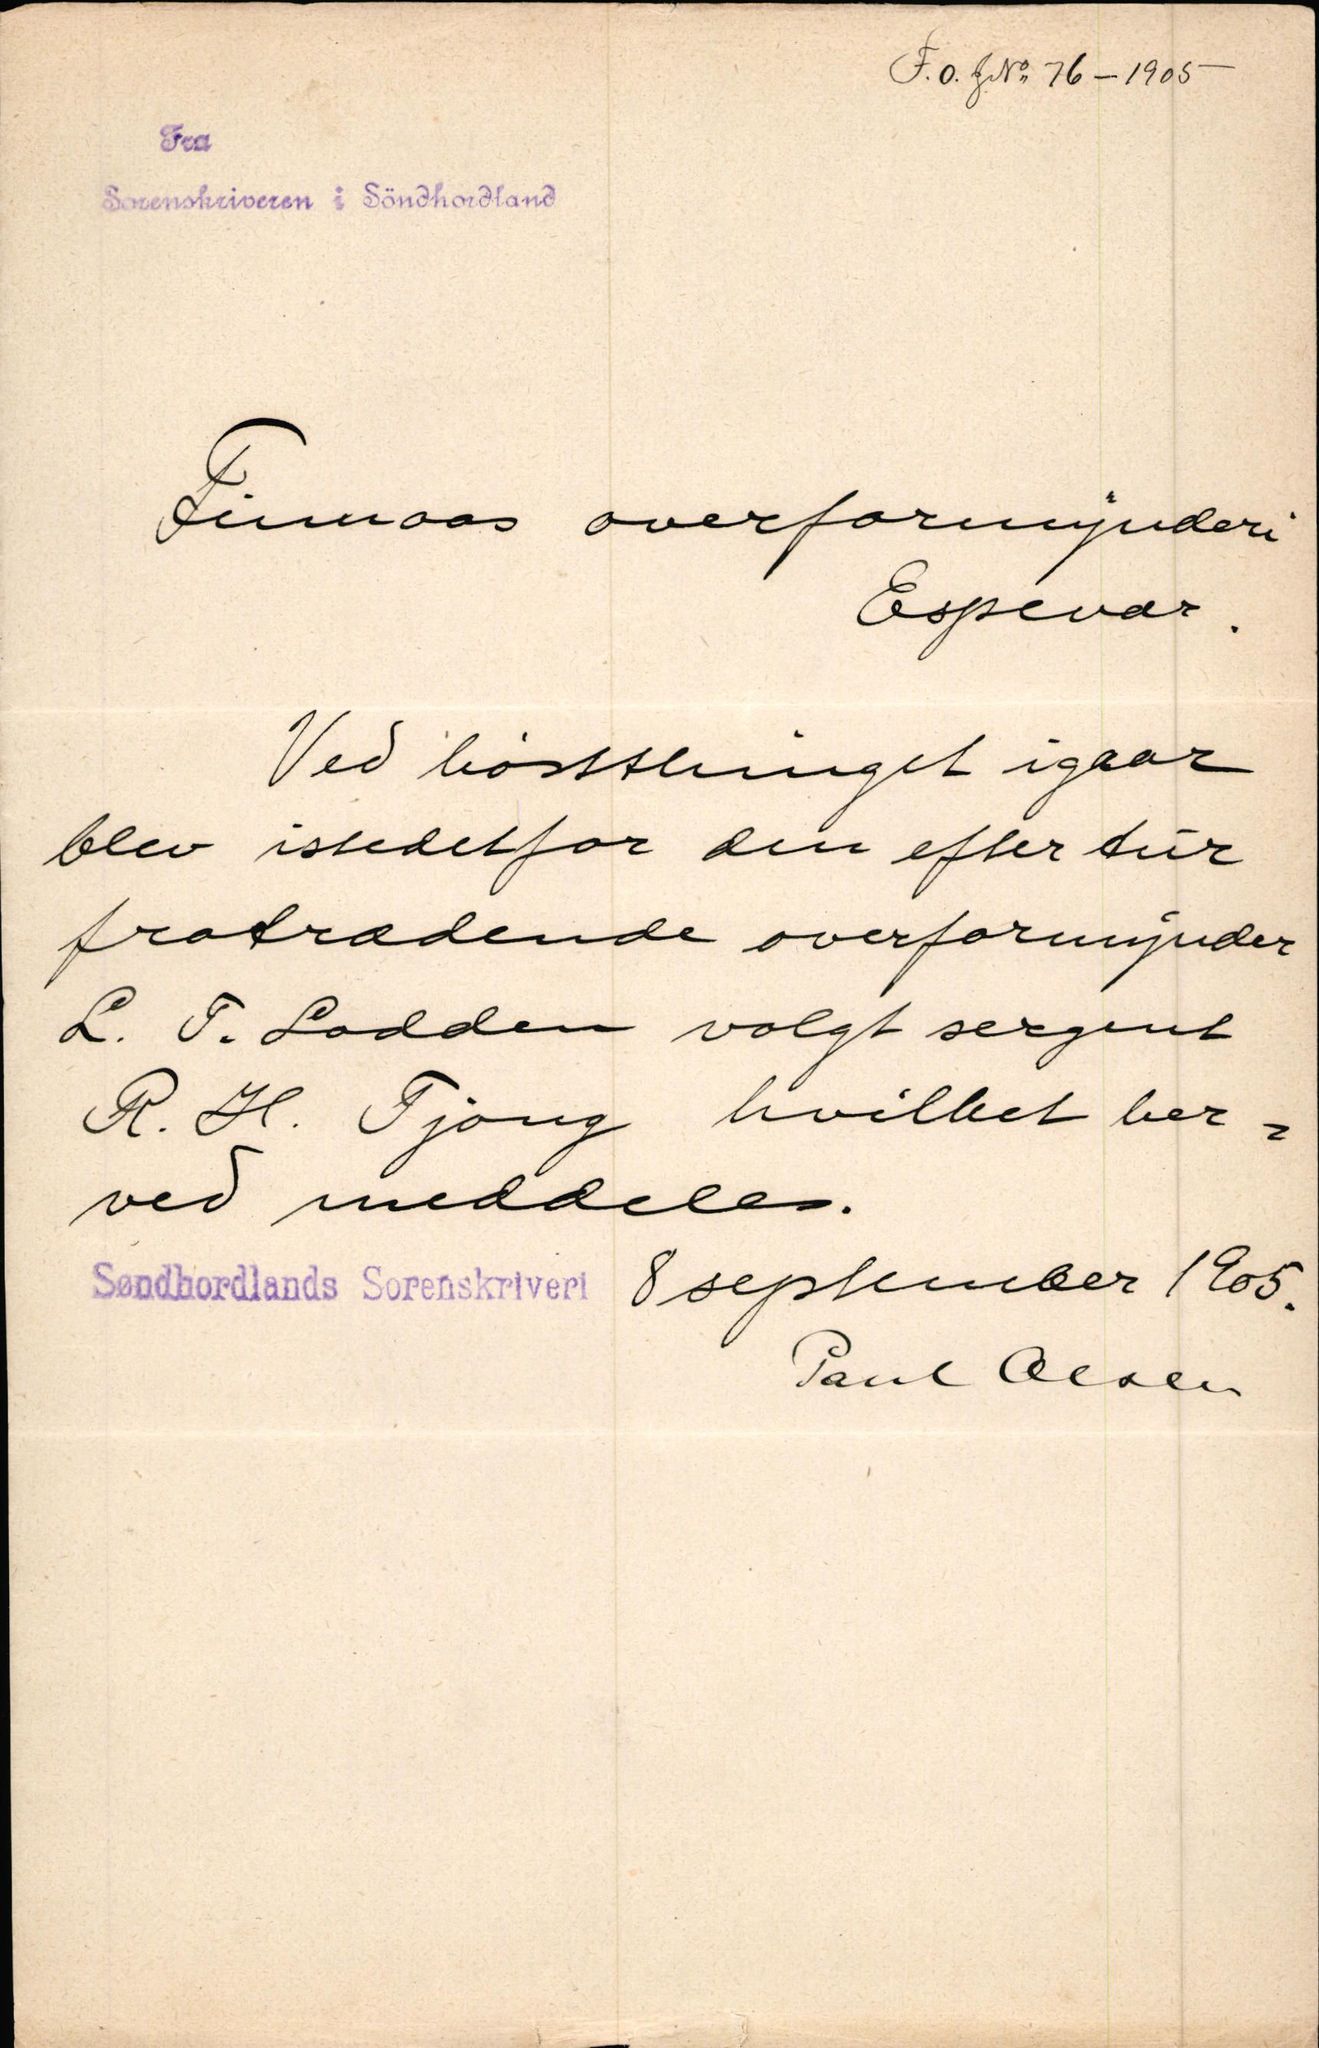 F.o. J№ 76 – 1905
Fra
Sorenskriveren i Söndhordland
Finnaas overformynderi
Espevær.
Ved høstthinget igaar
blev istedetfor den efter tur
fratrædende overformynder
L. T. Lodden valgt sergent
R. H. Tjong hvilket her=
ved meddeles.
Søndhordlands Sorenskriveri 8 september 1905.
Paul Olsen